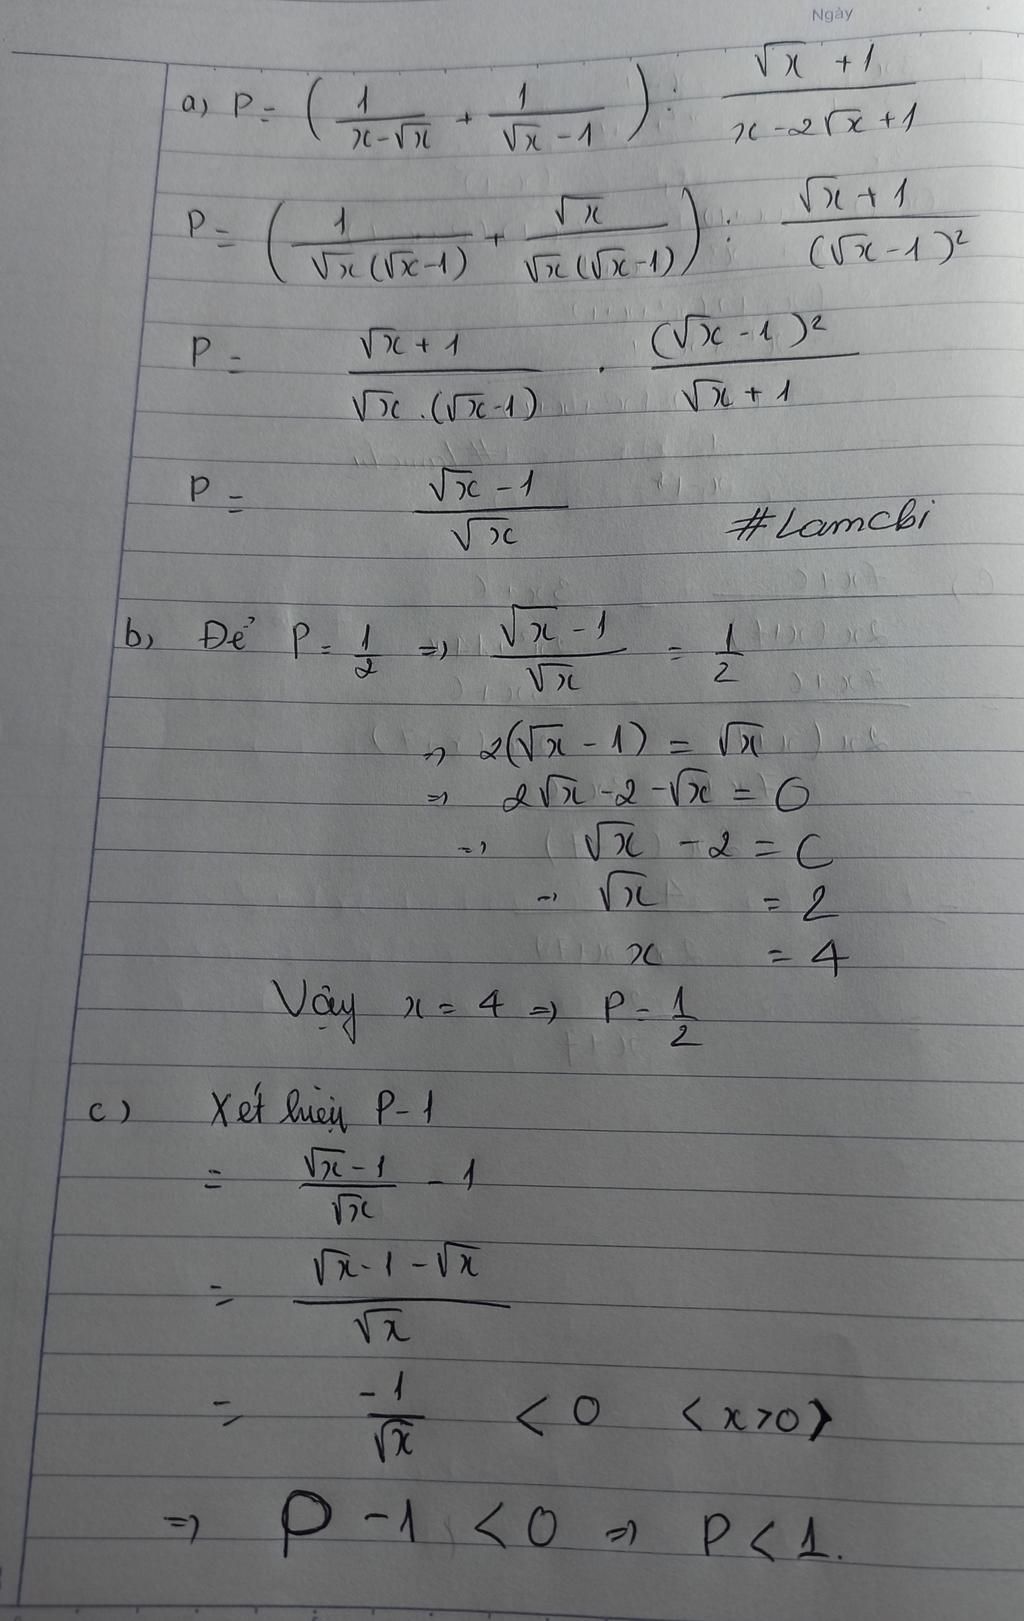 Ngày
a) P = ( 1/(x-√x) + 1/(√x - 1) ) : (√x + 1)/(x - 2√x + 1)
P = ( 1/(√x(√x-1)) + √x/(√x(√x-1)) ) : (√x + 1)/((√x - 1)²)
P = (√x + 1)/(√x . (√x-1)) . ((√x - 1)²)/(√x + 1)
P = (√x - 1)/√x #Lamcbi
b) Để P = 1/2 => (√x - 1)/√x = 1/2
=> 2(√x - 1) = √x
=> 2√x - 2 - √x = 0
=> √x - 2 = 0
=> √x = 2
x = 4
Vậy x = 4 => P = 1/2
c) Xét hiệu P - 1
= (√x - 1)/√x - 1
= (√x - 1 - √x)/√x
= -1/√x < 0 <x>0>
=> P - 1 < 0 => P < 1.